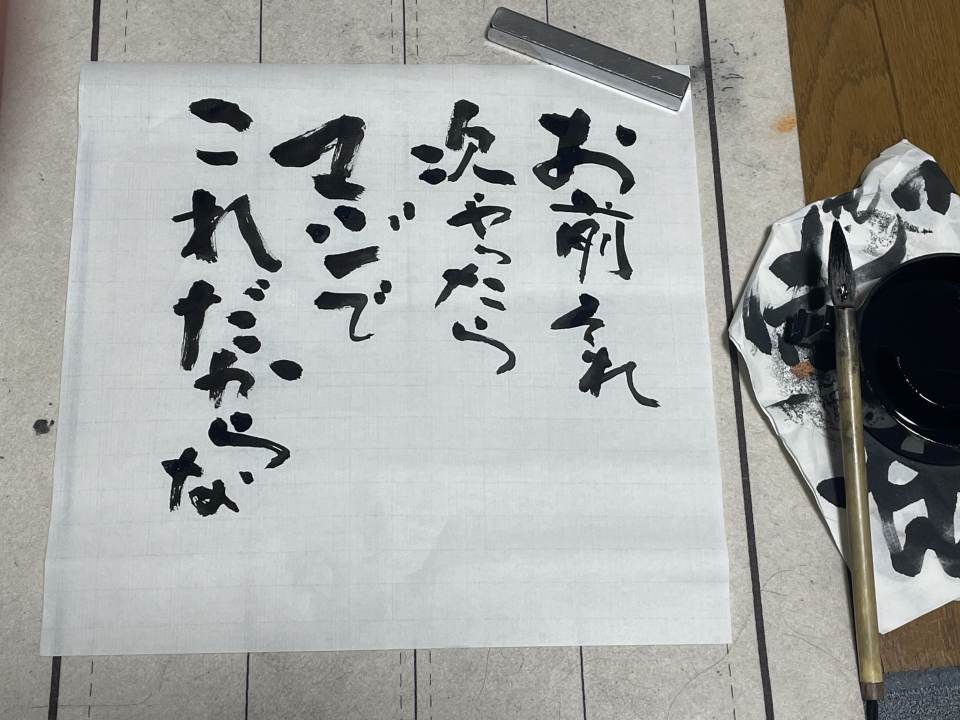 お前それ
次やったら
マジで
これだからな